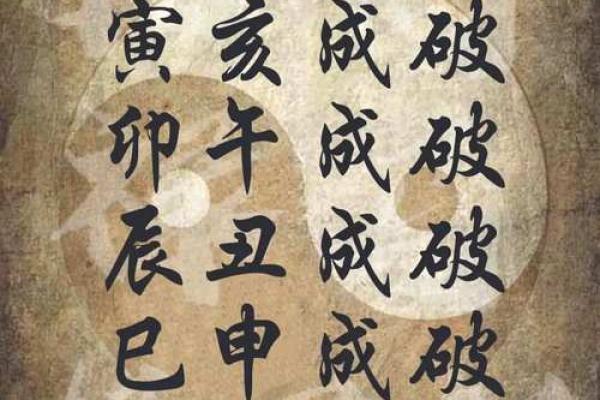 寅亥成破
卯午成破
辰丑成破
巳申成破